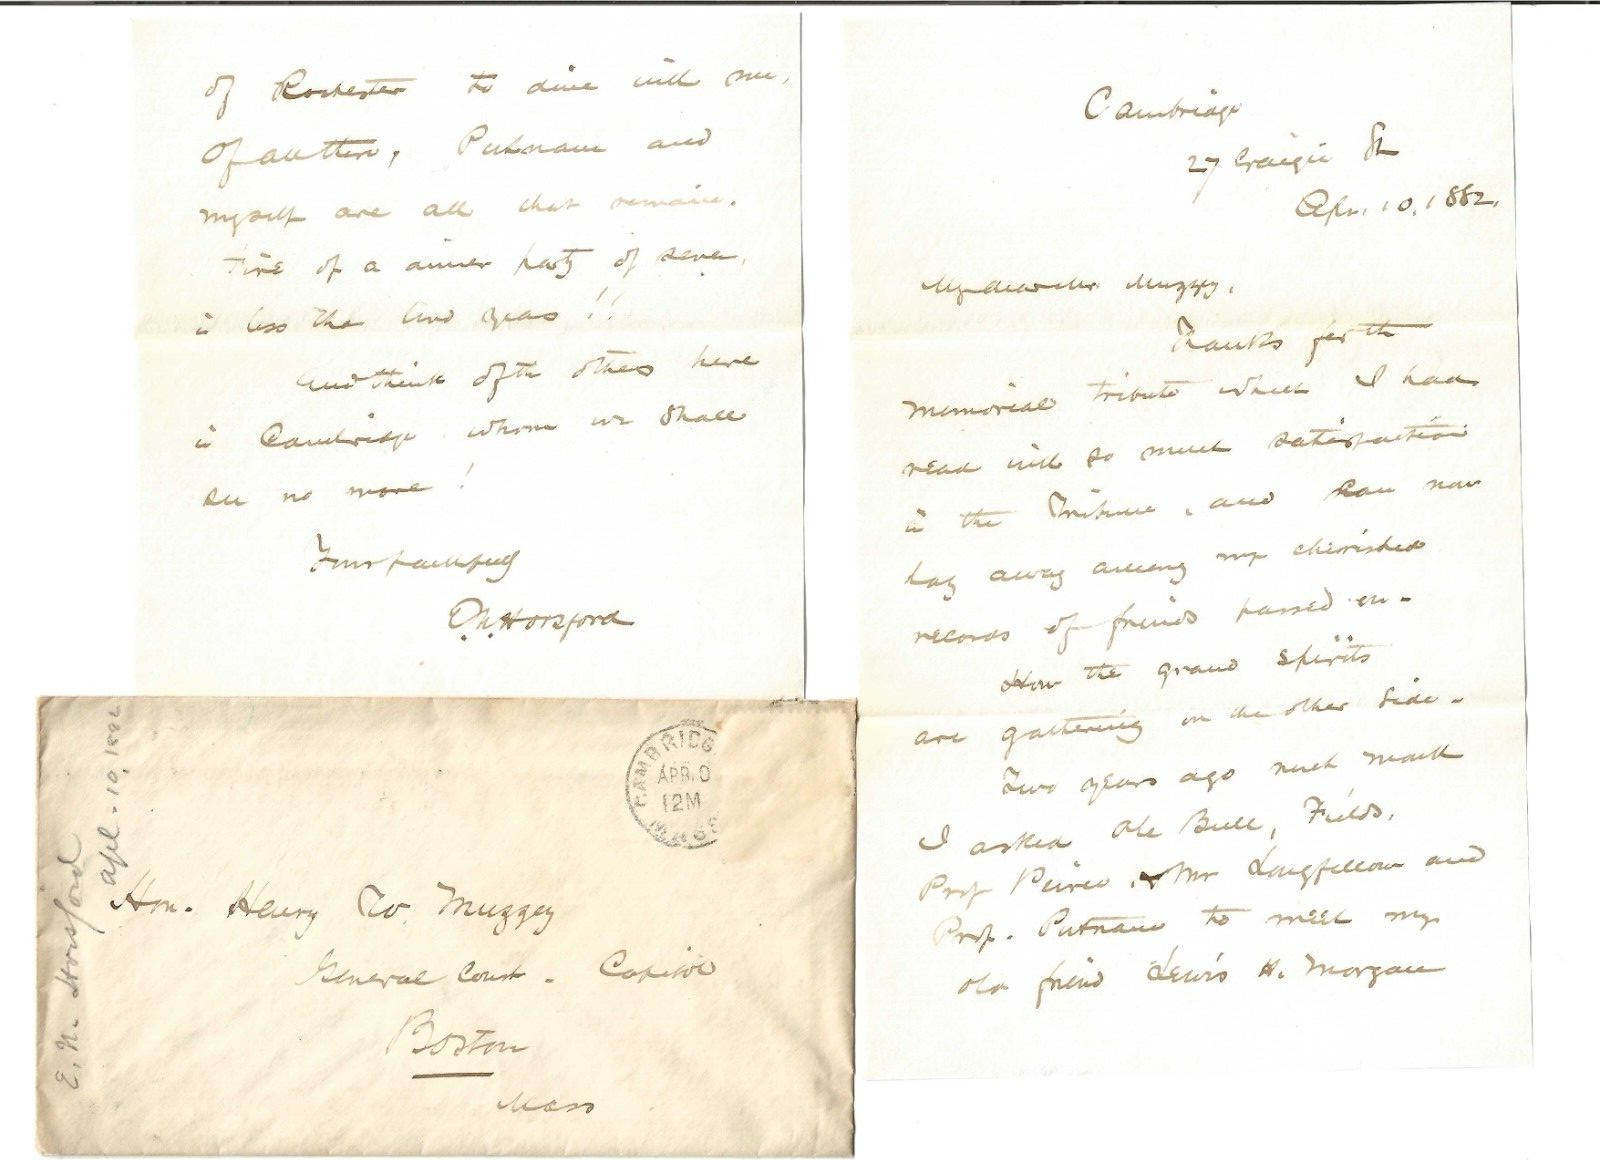 Cambridge
27 Craigie St
Apr. 10, 1882.
My dear Mr. Muzzey,
Thanks for the
memorial tribute which I had
read with so much satisfaction
in the Tribune, and can now
lay away among my cherished
records of friends passed on -
How the grand spirits
are gathering on the other side -
Two years ago next month
I asked Ole Bull, Fields,
Prof Peirce, Mr Longfellow and
Prof. Putnam to meet my
old friend Lewis H. Morgan
of Rochester to dine with me.
Of all these, Putnam and
myself are all that remain.
Five of a dinner party of seven,
in less than two years!!
And think of the others here
in Cambridge whom we shall
see no more!
Yours faithfully
E.N. Horsford
CAMBRIDG
APR. 0
12M
MASS
E. N. Horsford
Apl - 10, 1882
Hon. Henry W. Muzzey
General Court - Capitol
Boston
Mass